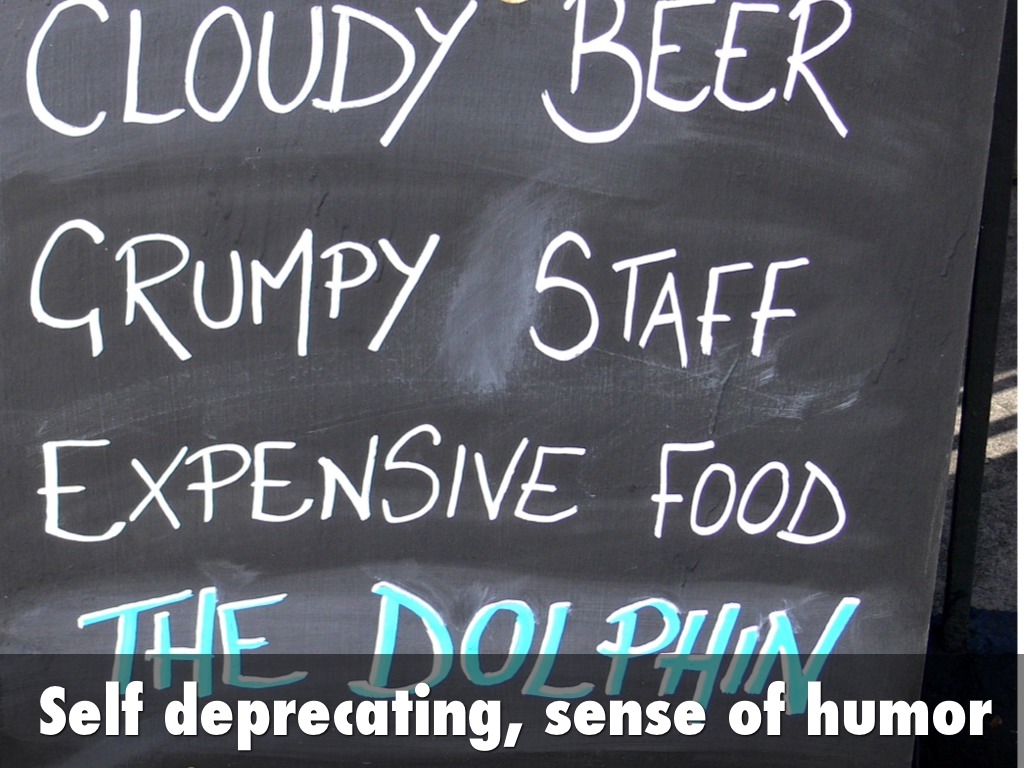 CLOUDY BEER
GRUMPY STAFF
EXPENSIVE FOOD
THE DOLPHIN
Self deprecating, sense of humor